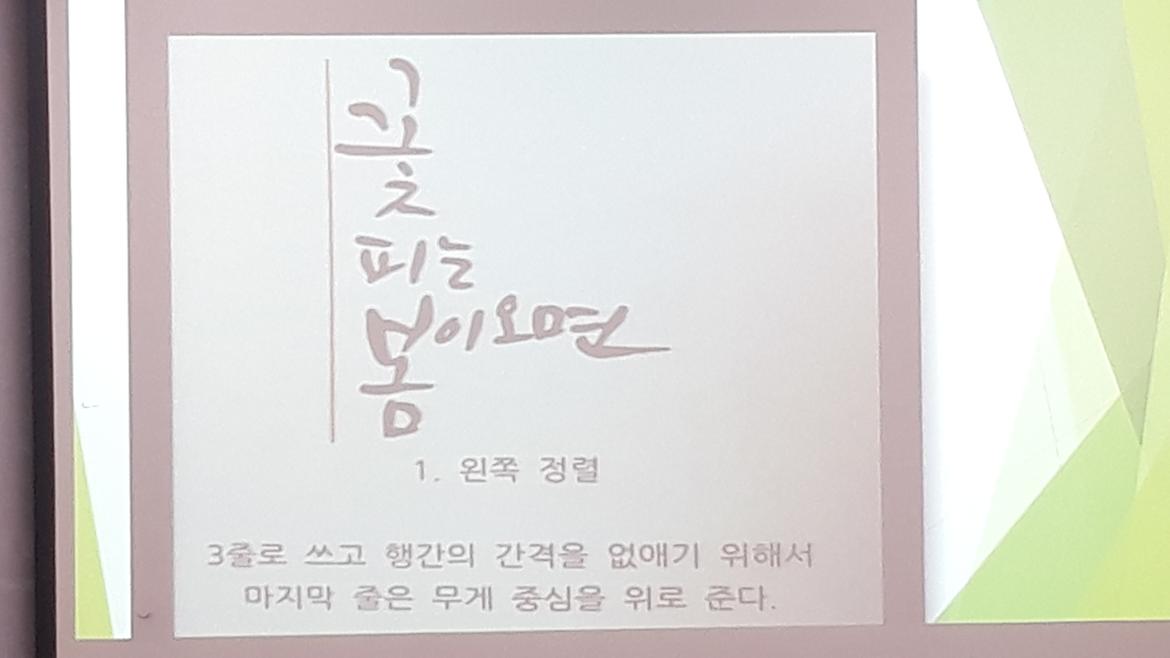 꽃
피는
봄이오면
1. 왼쪽 정렬
3줄로 쓰고 행간의 간격을 없애기 위해서
마지막 줄은 무게 중심을 위로 준다.